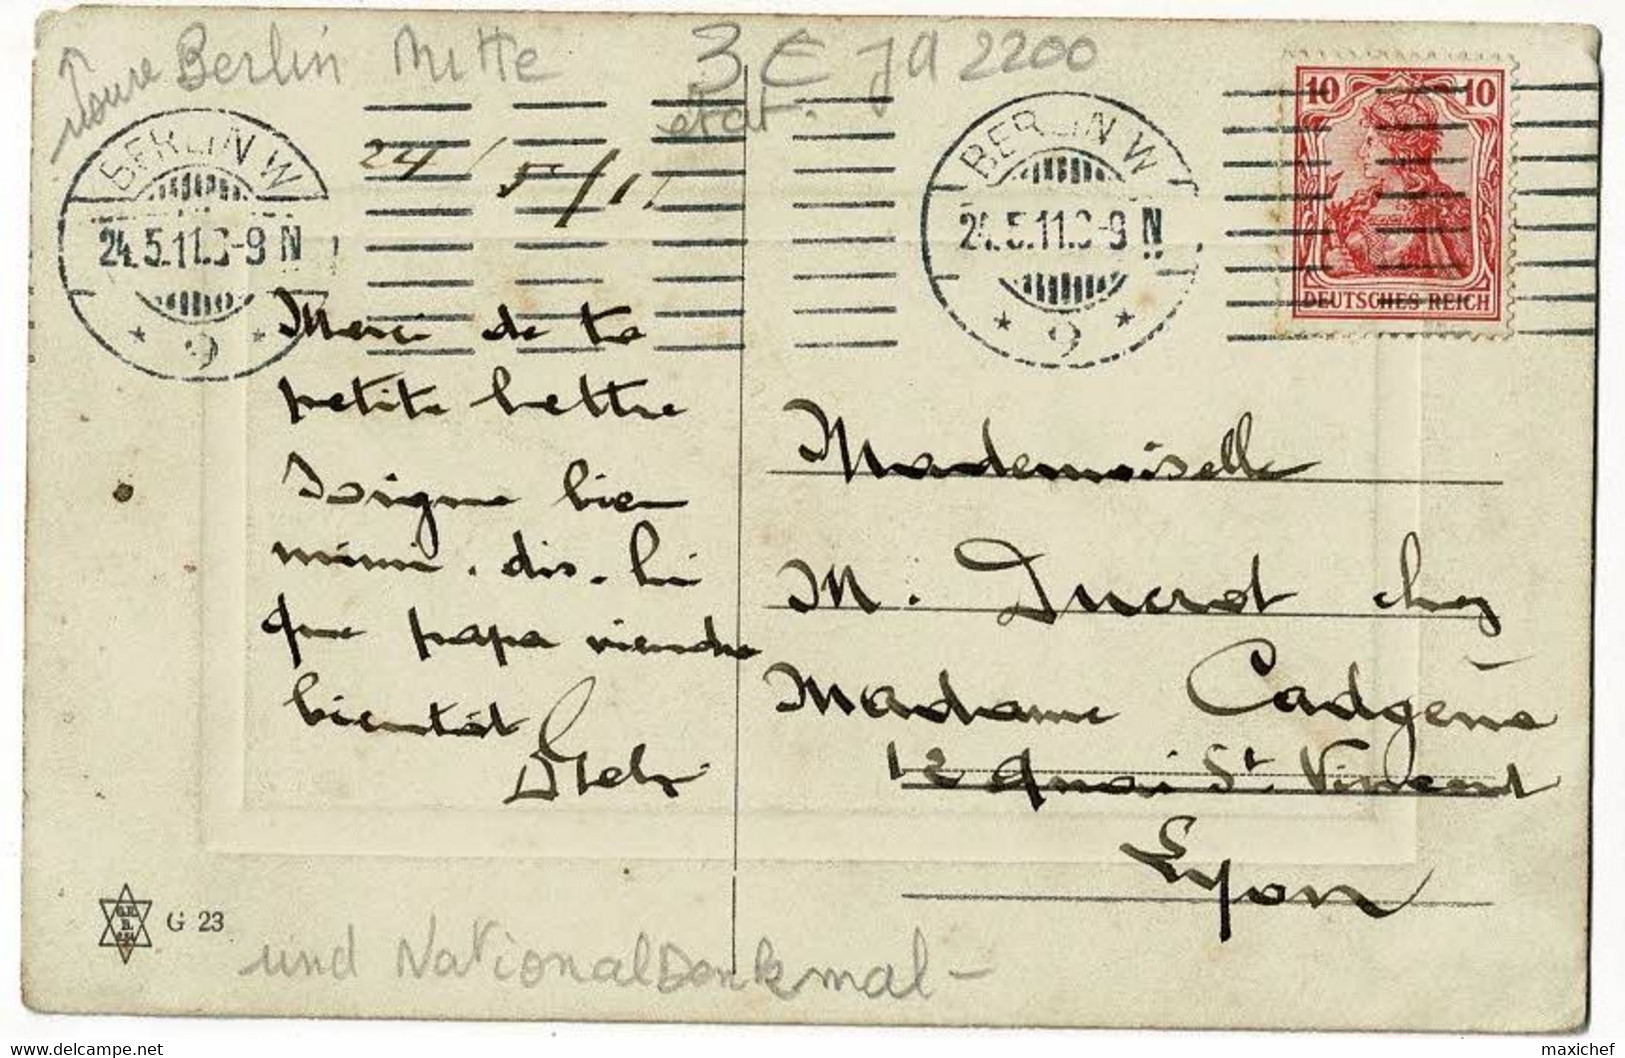 Berlin Mitte 3 € JA 2200
état.
BERLIN W
24.5.11.8-9 N
* 9 *
24/5/11
BERLIN W
24.5.11.8-9 N
* 9 *
10 10
DEUTSCHES REICH
Merci de ta
petite lettre
Soigne bien
mimi. dis-lui
que papa viendra
bientôt
Mademoiselle
M. Ducrot chez
Madame Cadgène
12 Quai St. Vincent
Lyon
G 23
und National Denkmal -
delcampe.net
maxichef